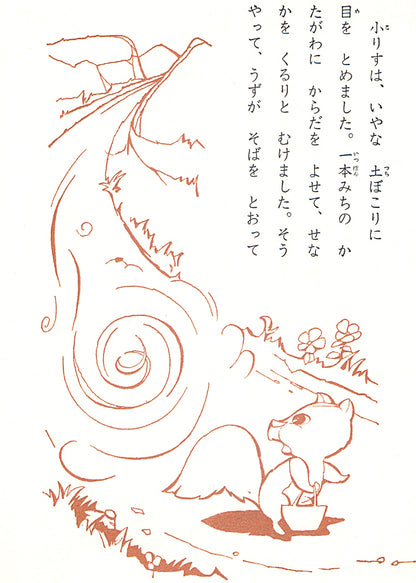 小りすは、いやな　土ぼこりに
目を　とめました。一本みちの　か
たがわに　からだを　よせて、せな
かを　くるりと　むけました。そう
やって、うずが　そばを　とおって